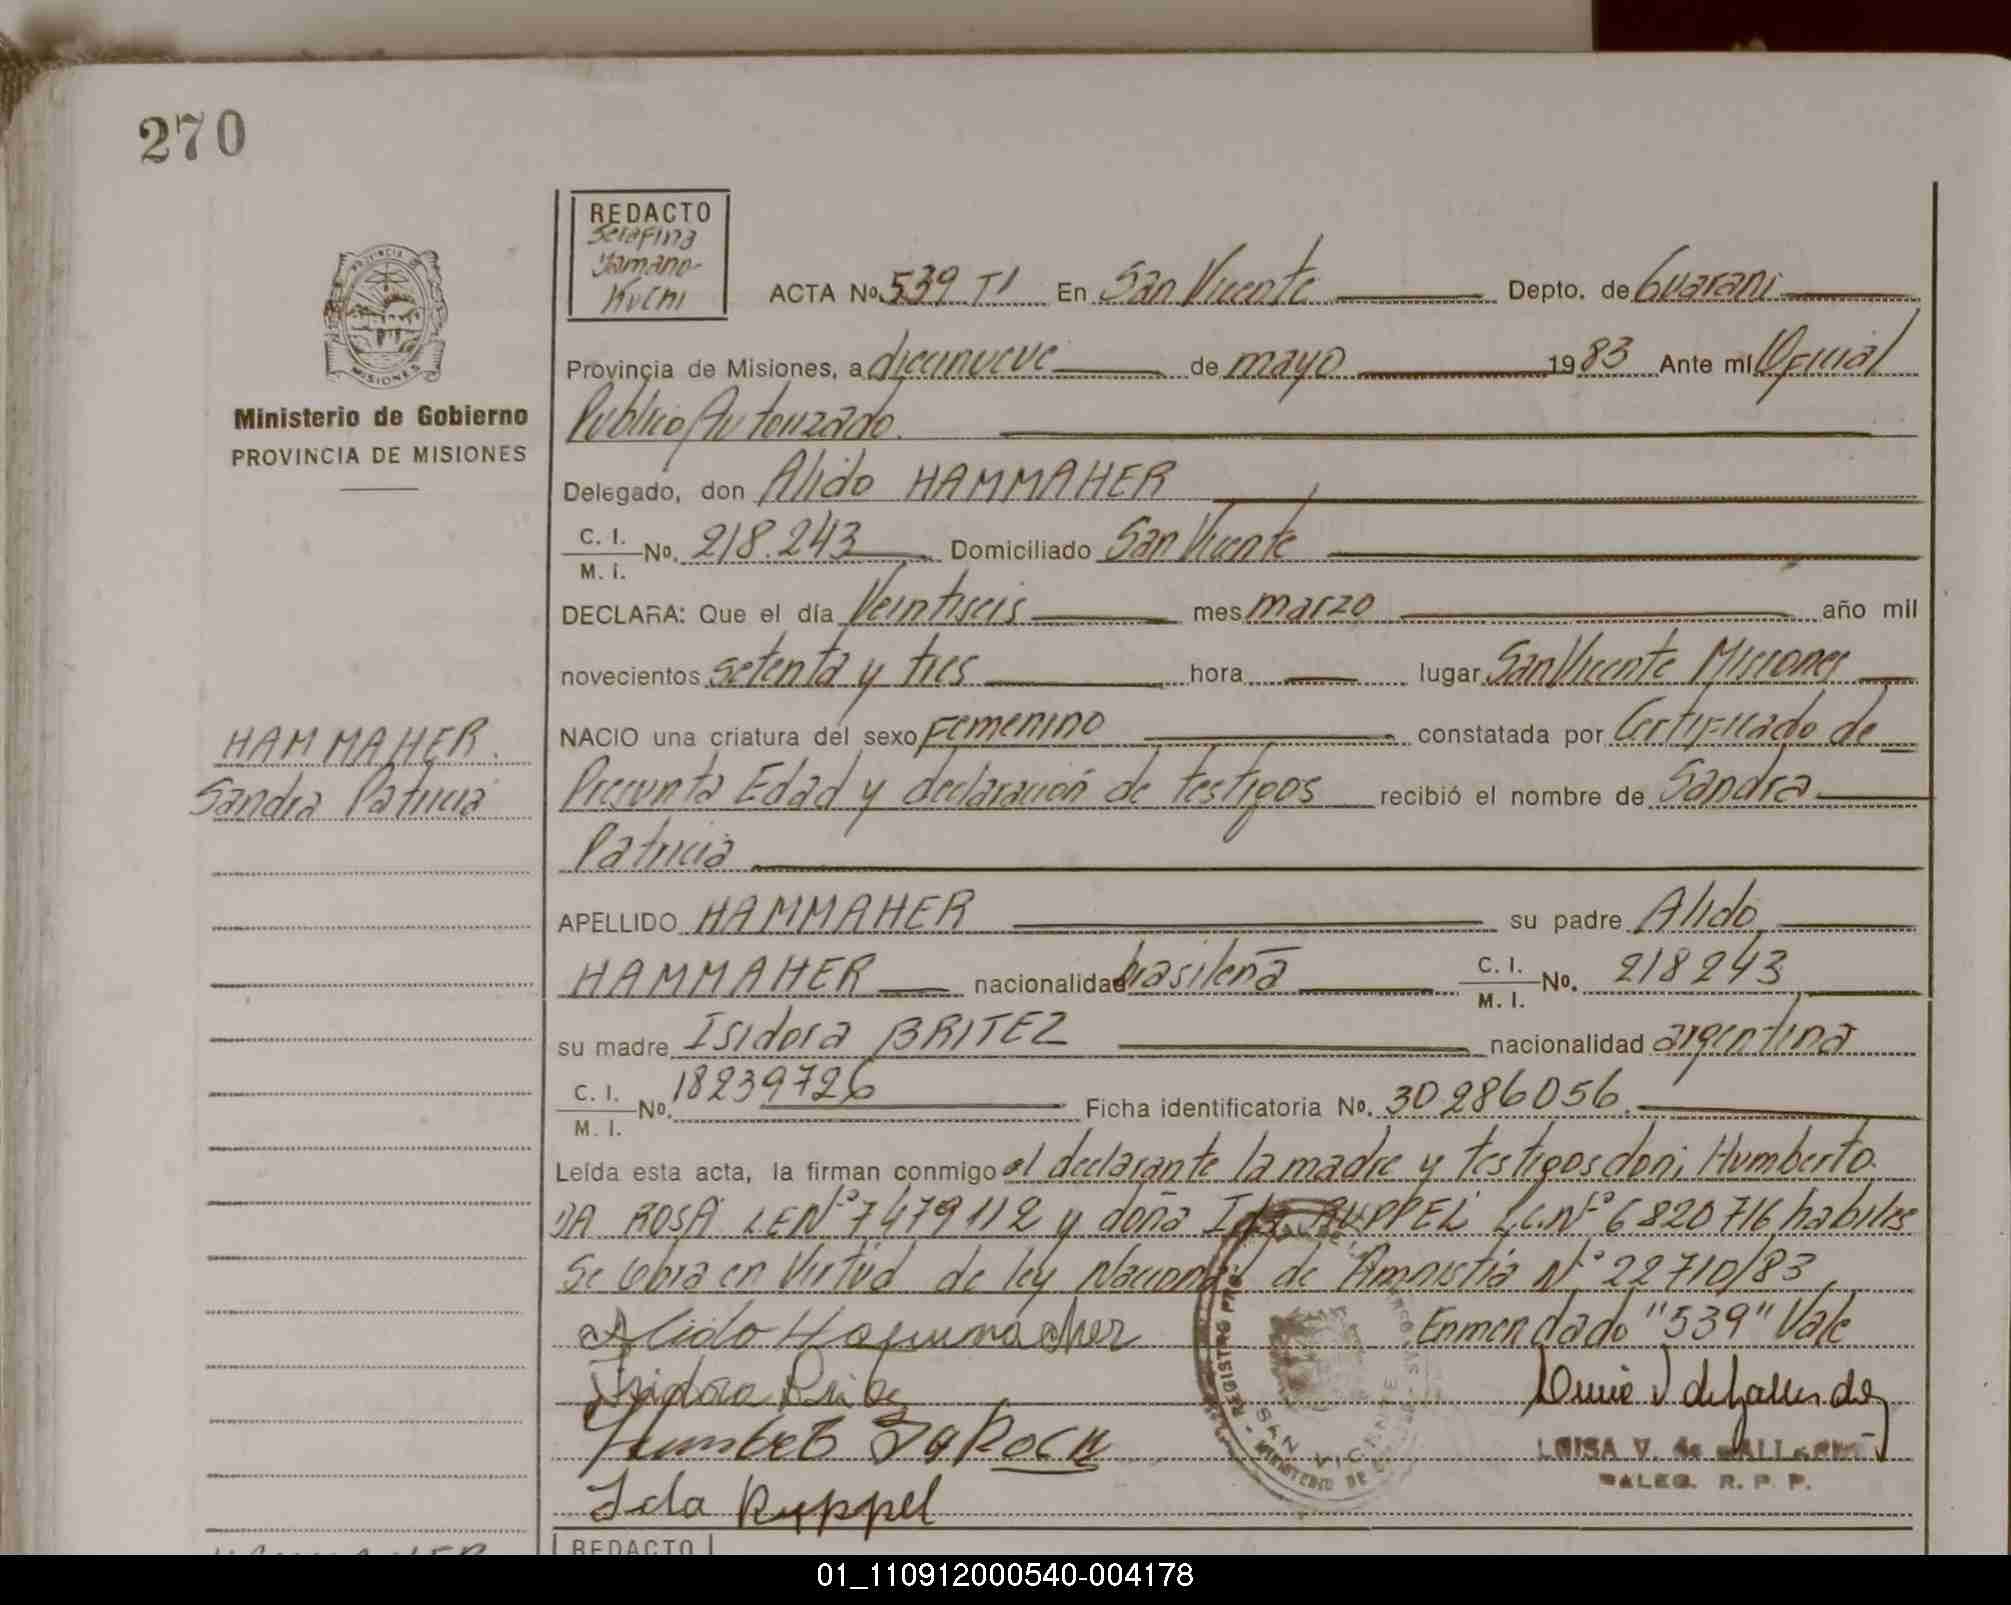 270
REDACTO
Serafina
Yamano-
Kuchi
ACTA No. 539 TI En San Vicente Depto. de Guarani
PROVINCIA DE
MISIONES
Ministerio de Gobierno
PROVINCIA DE MISIONES
Provincia de Misiones, a diecinueve de mayo 1983 Ante mí Oficial
Publico Autorizado.
Delegado, don Alido HAMMAHER
C. I.
M. I. No. 218.243 Domiciliado San Vicente
DECLARA: Que el día Veintiseis mes marzo año mil
novecientos setenta y tres hora lugar San Vicente Misiones
HAMMAHER.
Sandra Patricia
NACIO una criatura del sexo Femenino constatada por Certificado de
Presunta Edad y declaración de testigos recibió el nombre de Sandra
Patricia
APELLIDO HAMMAHER su padre Alido
HAMMAHER nacionalidad brasileña C. I.
M. I. No. 218243
su madre Isidora BRITEZ nacionalidad argentina
C. I.
M. I. No. 18239726 Ficha identificatoria No. 30286056.
Leída esta acta, la firman conmigo el declarante la madre y testigos don; Humberto
DA ROSA LE Nº 7479112 y doña Ida RUPPEL L.C. Nº 6820716 habiles
Se labra en Virtud de ley Nacional de Amnistia Nº 22710/83.
Alido Hammacher Enmendado "539" Vale
Isidora
Humbeto Da Rocha
Ida Ruppel
REGISTRO
SAN VICENTE
MINISTERIO DE
LUISA V. de
R. P. P.
REDACTO
HAMMAHER
01_110912000540-004178